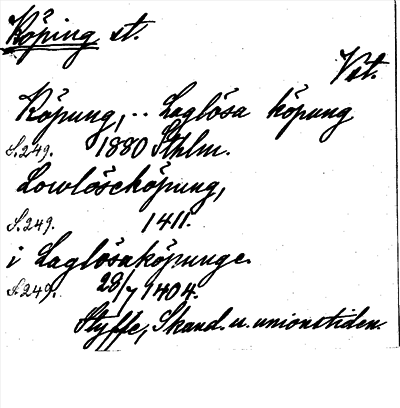 Köping st.
Vst.
Köpung, .. Laglösa köpung
S. 249. 1880 Sthlm.
Lowlöseköpung,
S. 249. 1411.
i Laglösaköpunge
S. 249. 28/7 1404.
Styffe, Skand. u. unionstiden.